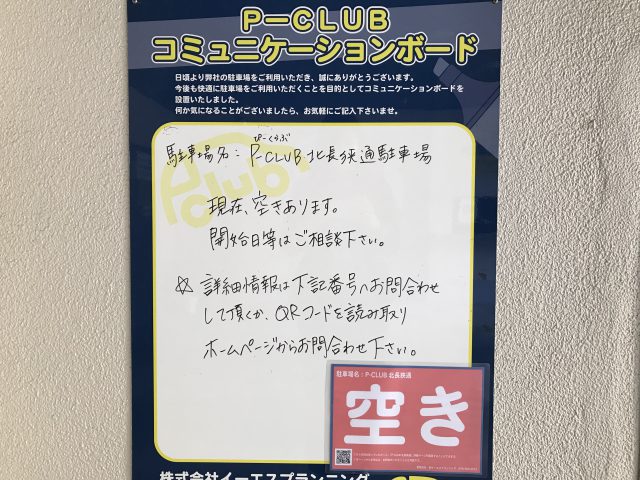 P－CLUB
コミュニケーションボード
日頃より弊社の駐車場をご利用いただき、誠にありがとうございます。
今後も快適に駐車場をご利用いただくことを目的としてコミュニケーションボードを
設置いたしました。
何か気になることがございましたら、お気軽にご記入下さいませ。
ぴーくらぶ
駐車場名：P-CLUB 北長狭通駐車場
現在、空きあります。
開始日等はご相談下さい。
☆ 詳細情報は下記番号へお問合わせ
して頂くか、QRコードを読み取り
ホームページからお問合わせ下さい。
P club
駐車場名：P-CLUB 北長狭通
空き
株式会社イーエスプランニング